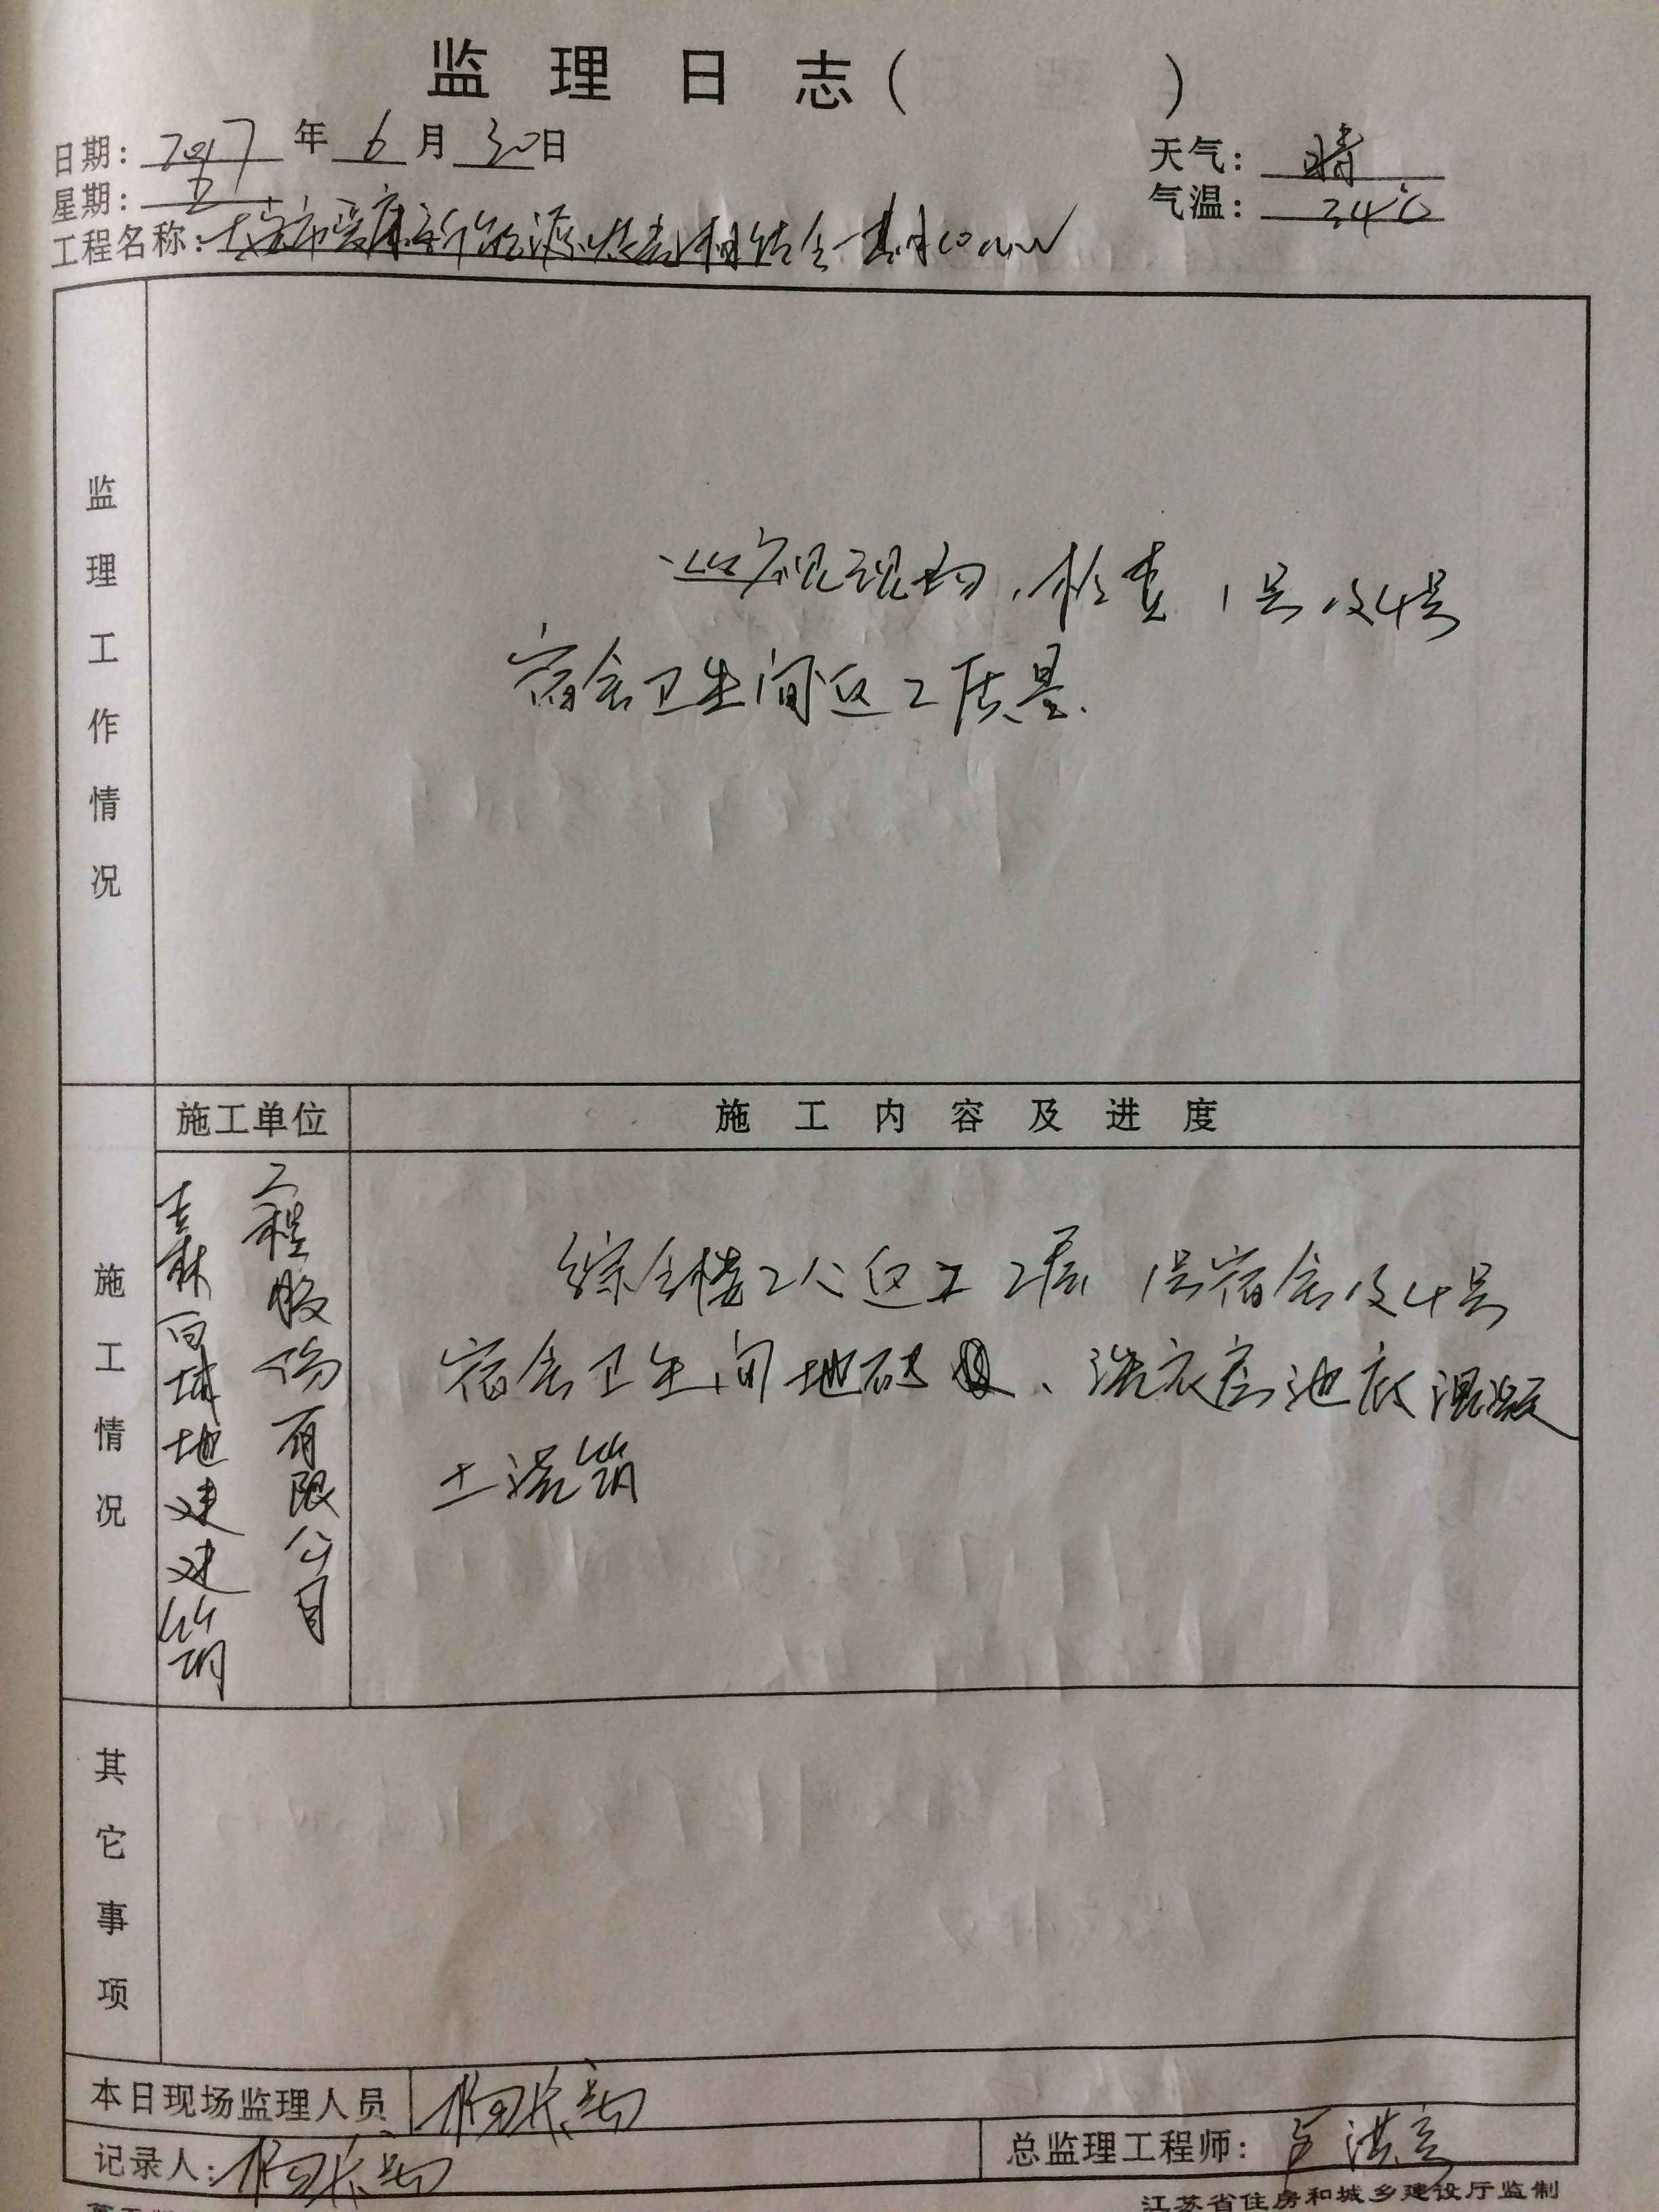 监理日志( )
日期: 2017 年 6 月 30日
天气: 晴
星期: 五
气温: 34℃
工程名称: 大安市爱康新能源 相结合一期10MW
监理工作情况
巡视现场,检查1号及4号
宿舍卫生间返工质量.
施工情况
施工单位
施工内容及进度
吉林百城地建建筑
工程股份有限公司
综合楼2人返工2层 1号宿舍及4号
宿舍卫生间地砖、洗衣房池底混凝
土浇筑
其它事项
本日现场监理人员
记录人:
总监理工程师:
江苏省住房和城乡建设厅监制